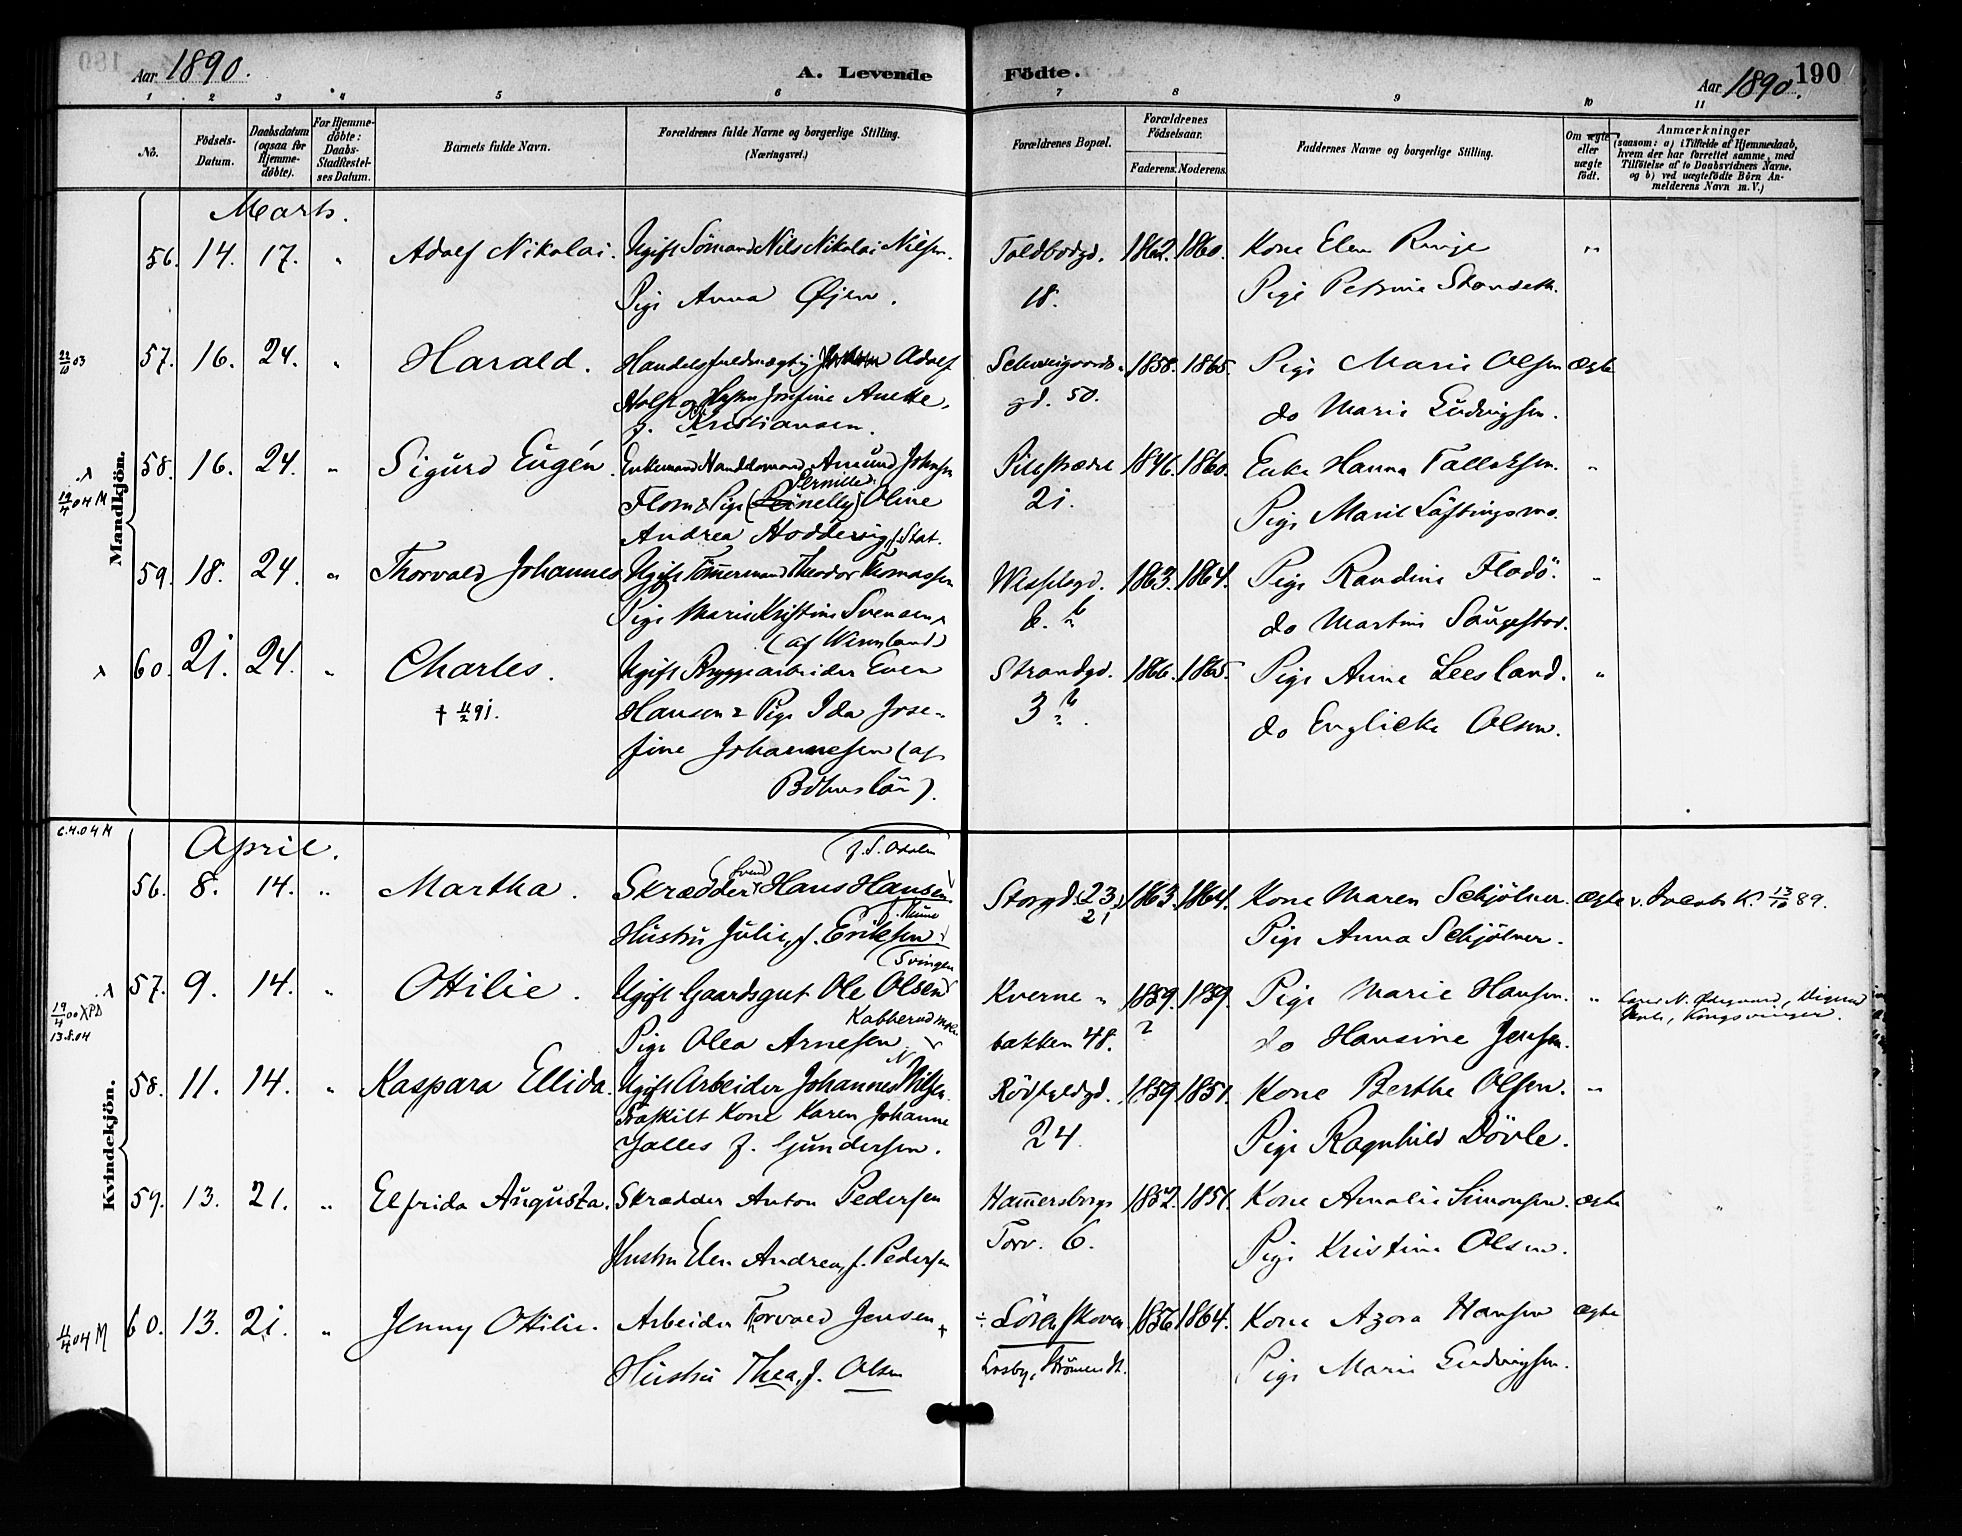 Aar 1890.
A. Levende
Födte.
Aar 1890.
190
1 2 3 4 5 6 7 8 9 10 11
No.
Födsels-Datum.
Daabsdatum (ogsaa for Hjemme-döbte).
For Hjemme-döbte: Daabs-Stadfæstel-ses Datum.
Barnets fulde Navn.
Forældrenes fulde Navne og borgerlige Stilling.
(Næringsvei.)
Forældrenes Bopæl.
Forældrenes Födselsaar.
Faderens. Moderens.
Faddernes Navne og borgerlige Stilling.
Om ægte eller uægte födt.
Anmærkninger
(saasom: a) i Tilfælde af Hjemmedaab,
hvem der har forrettet samme, med
Tilföielse af to Daabsvidners Navne.
og b) ved uægtefödte Börn An-
melderens Navn m. V.)
Mandkjön.
Marts.
56. 14. 17. " Adolf Nikolai. Ugift Sömand Nils Nikolai Nilsen. Toldbodgd. 1862. 1860. Kone Elen Ringe "
Pige Anna Öjen. 18. Pige Petrine
22/10 03 57. 16. 24. " Harald. Handelsfuldmægtig Adolf Schweigaards- 1858. 1865. Pige Marie Olsen Ægte
Holst og Hustru Josefine Anette, gd. 50. do Marie Ludvigsen.
f. Kristiansen.
19/4 04 M 58. 16. 24. " Sigurd Eugén Enkemand Handelsmand Amund Johnsen Pilestrædet 1846. 1860. Enke Hanna Talleksen. "
Pernille
Flom & Pige Oline 21. Pige Marit
Andrea Hoddevig, Stat.
59. 18. 24. " Thorvald Johannes Ugift Tömmermand Theodor Thomassen Wesselsgd. 1863. 1864. Pige Randine Flodö. "
Pige Marie Kristine Svensen 6. b do Martine
(af Wermland)
60. 21. 24. " Charles. Ugift Bryggearbeider Even Strandgd. 1866. 1865. Pige Anne Leesland. "
† 11/2 91. Hansen & Pige Ida Jose- 3 b. do Englicke Olsen.
fine Johannesen (af
Båhuslän).
Kvindekjön.
6.4.04 M April.
56. 8. 14. " Martha. Skrædder Hans Hansen Storgd. 23 1863. 1864. Kone Maren Schjölner. Ægte v. Jacobs K. 13/10 89.
Hustru Julie, f. Eriksen. 21 Pige Anna Schjölner.
Svingen
57. 9. 14. " Ottilie. Ugift Gaardsgut Ole Olsen Kverne- 1859. 1859. Pige Marie Hansen. "
19/4 00 XPD
13.8.04 Pige Olea Arnesen bakken 48. ? do Hansine Jensen. Kongsvinger.
58. 11. 14. " Kaspara Ellida. Ugift Arbeider Johannes Nilsen. Rödfyldgd. 1859 1851. Kone Berthe Olsen. "
Fraskilt Kone Karen Johanne 24. Pige Ragnhild Dövle.
f. Gundersen.
59. 13. 21. " Elfrida Augusta. Skrædder Anton Pedersen Hammersborgs 1852. 1851. Kone Amalie Simonsen. Ægte
Hustru Elen Andrea, f. Pedersen Torv. 6. Pige Kristine Olsen.
11/4 04 M 60. 13. 21. " Jenny Ottilie. Arbeider Torvald Jensen Sörenskoven 1856 1864. Kone Azora Hansen Ægte
Hustru Thea, f. Olsen Losby, Pige Marie Ludvigsen.